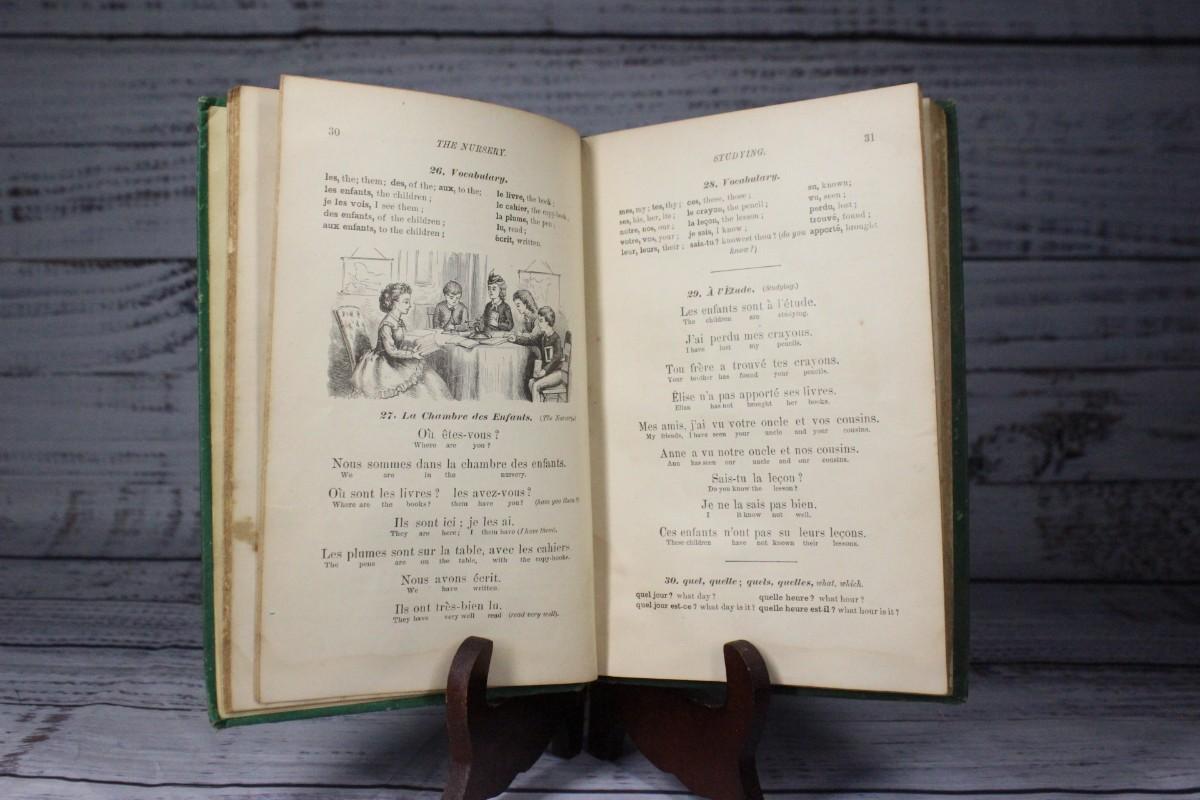 30
THE NURSERY.
26. Vocabulary.
les, the; them; des, of the; aux, to the;
les enfants, the children;
je les vois, I see them;
des enfants, of the children;
aux enfants, to the children;
le livre, the book;
le cahier, the copy-book;
la plume, the pen;
lu, read;
écrit, written.
27. La Chambre des Enfants. (The Nursery.)
Où êtes-vous?
Where are you?
Nous sommes dans la chambre des enfants.
We are in the nursery.
Où sont les livres? les avez-vous?
Where are the books? them have you? (have you them?)
Ils sont ici; je les ai.
They are here; I them have (I have them).
Les plumes sont sur la table, avec les cahiers.
The pens are on the table, with the copy-books.
Nous avons écrit.
We have written.
Ils ont très-bien lu.
They have very well read (read very well).
31
STUDYING.
28. Vocabulary.
mes, my; tes, thy;
ses, his, her, its;
notre, nos, our;
votre, vos, your;
leur, leurs, their;
ces, these, those;
le crayon, the pencil;
la leçon, the lesson;
je sais, I know;
sais-tu? knowest thou? (do you
know?)
su, known;
vu, seen;
perdu, lost;
trouvé, found;
apporté, brought
29. À l'Étude. (Studying.)
Les enfants sont à l'étude.
The children are studying.
J'ai perdu mes crayons.
I have lost my pencils.
Ton frère a trouvé tes crayons.
Your brother has found your pencils.
Élise n'a pas apporté ses livres.
Eliza has not brought her books.
Mes amis, j'ai vu votre oncle et vos cousins.
My friends, I have seen your uncle and your cousins.
Anne a vu notre oncle et nos cousins.
Ann has seen our uncle and our cousins.
Sais-tu la leçon?
Do you know the lesson?
Je ne la sais pas bien.
I it know not well.
Ces enfants n'ont pas su leurs leçons.
These children have not known their lessons.
30. quel, quelle; quels, quelles, what, which.
quel jour? what day? quelle heure? what hour?
quel jour est-ce? what day is it? quelle heure est-il? what hour is it?